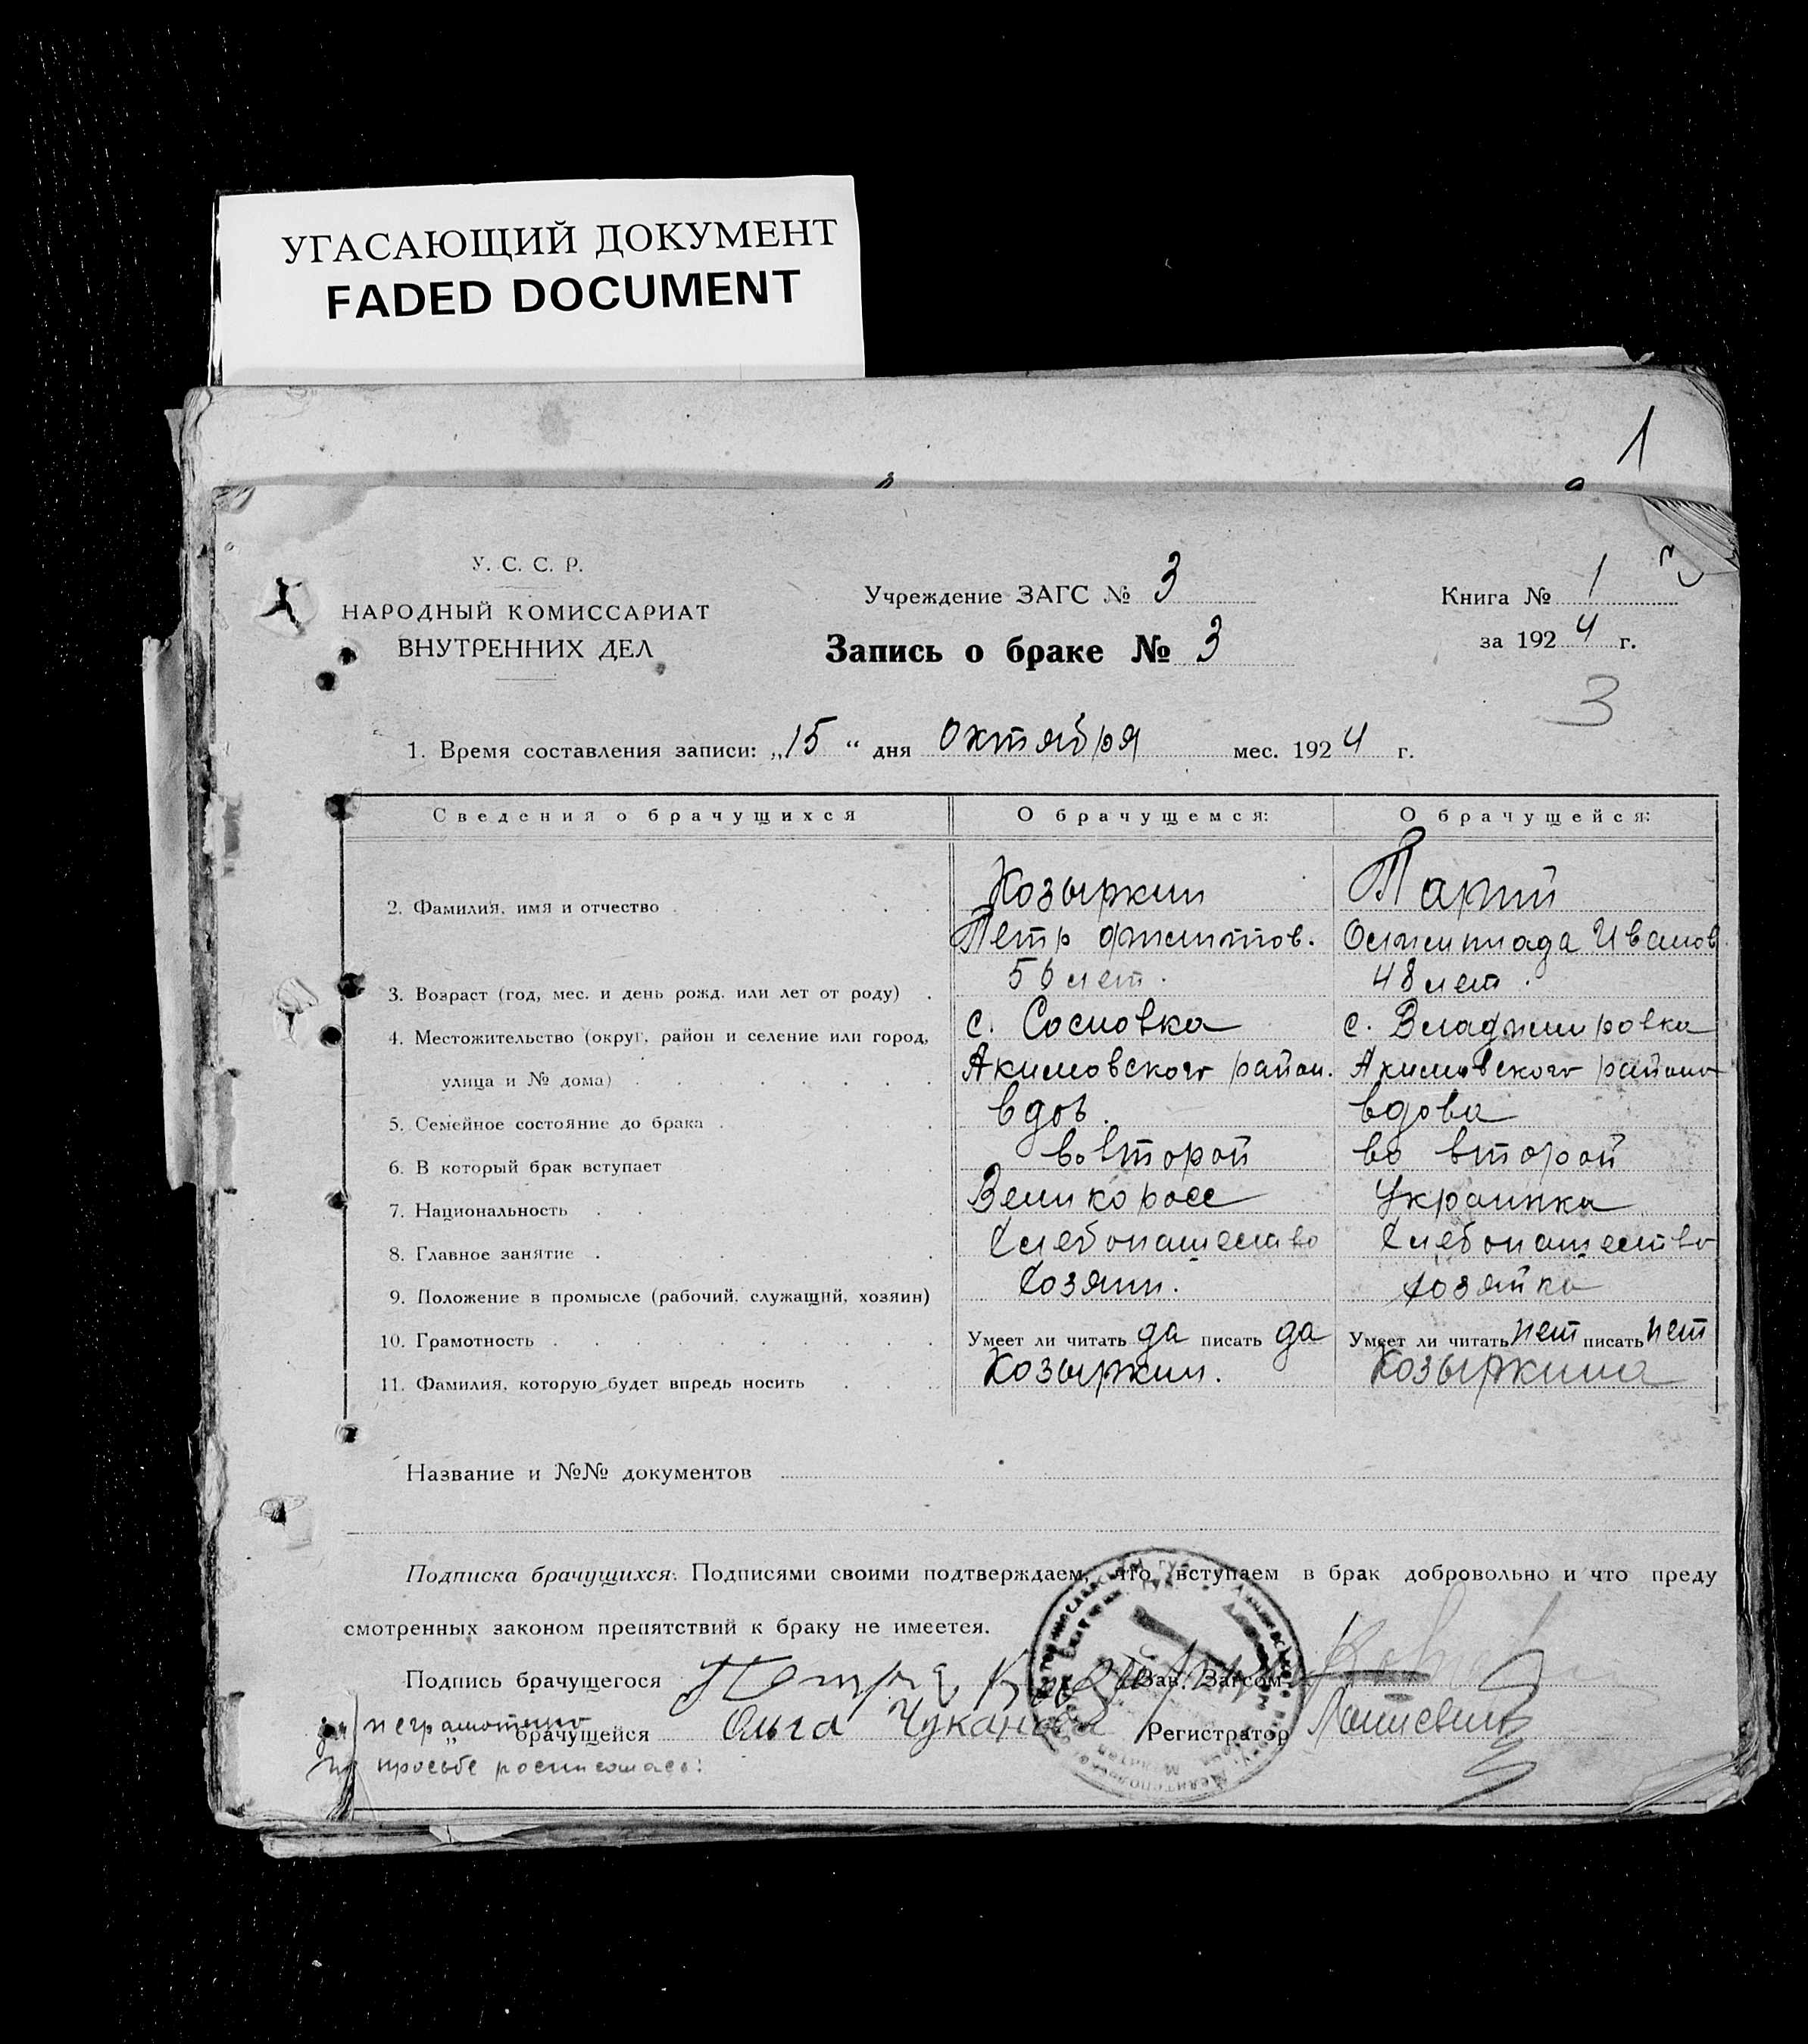 УГАСАЮЩИЙ ДОКУМЕНТ
FADED DOCUMENT
1
У. С. С. Р.
НАРОДНЫЙ КОМИССАРИАТ
ВНУТРЕННИХ ДЕЛ
Учреждение ЗАГС № 3
Запись о браке № 3
Книга № 1
за 1924 г.
3
1. Время составления записи: „15“ дня Октября мес. 1924 г.
Сведения о брачущихся О брачущемся: О брачущейся:
2. Фамилия, имя и отчество Козыркин
Петр Тарий
Иванов.
3. Возраст (год, мес. и день рожд. или лет от роду) 56 лет. 48 лет.
4. Местожительство (округ, район и селение или город, с. Сосновка с. Владимировка
улица и № дома) Акимовского район. Акимовского района
5. Семейное состояние до брака вдов. вдова
6. В который брак вступает во второй во второй
7. Национальность Великоросс Украинка
8. Главное занятие Хлебопашество Хлебопашество
9. Положение в промысле (рабочий, служащий, хозяин) Хозяин. хозяйка
10. Грамотность Умеет ли читать да писать да Умеет ли читать нет писать нет
11. Фамилия, которую будет впредь носить Козыркин. Козыркина
Название и №№ документов
Подписка брачущихся: Подписями своими подтверждаем, что вступаем в брак добровольно и что преду
смотренных законом препятствий к браку не имеется.
Подпись брачущегося Петр Зав. Загсом
за неграмотную
„ брачущейся Ольга Чуканова Регистратор
по просьбе росписалась: